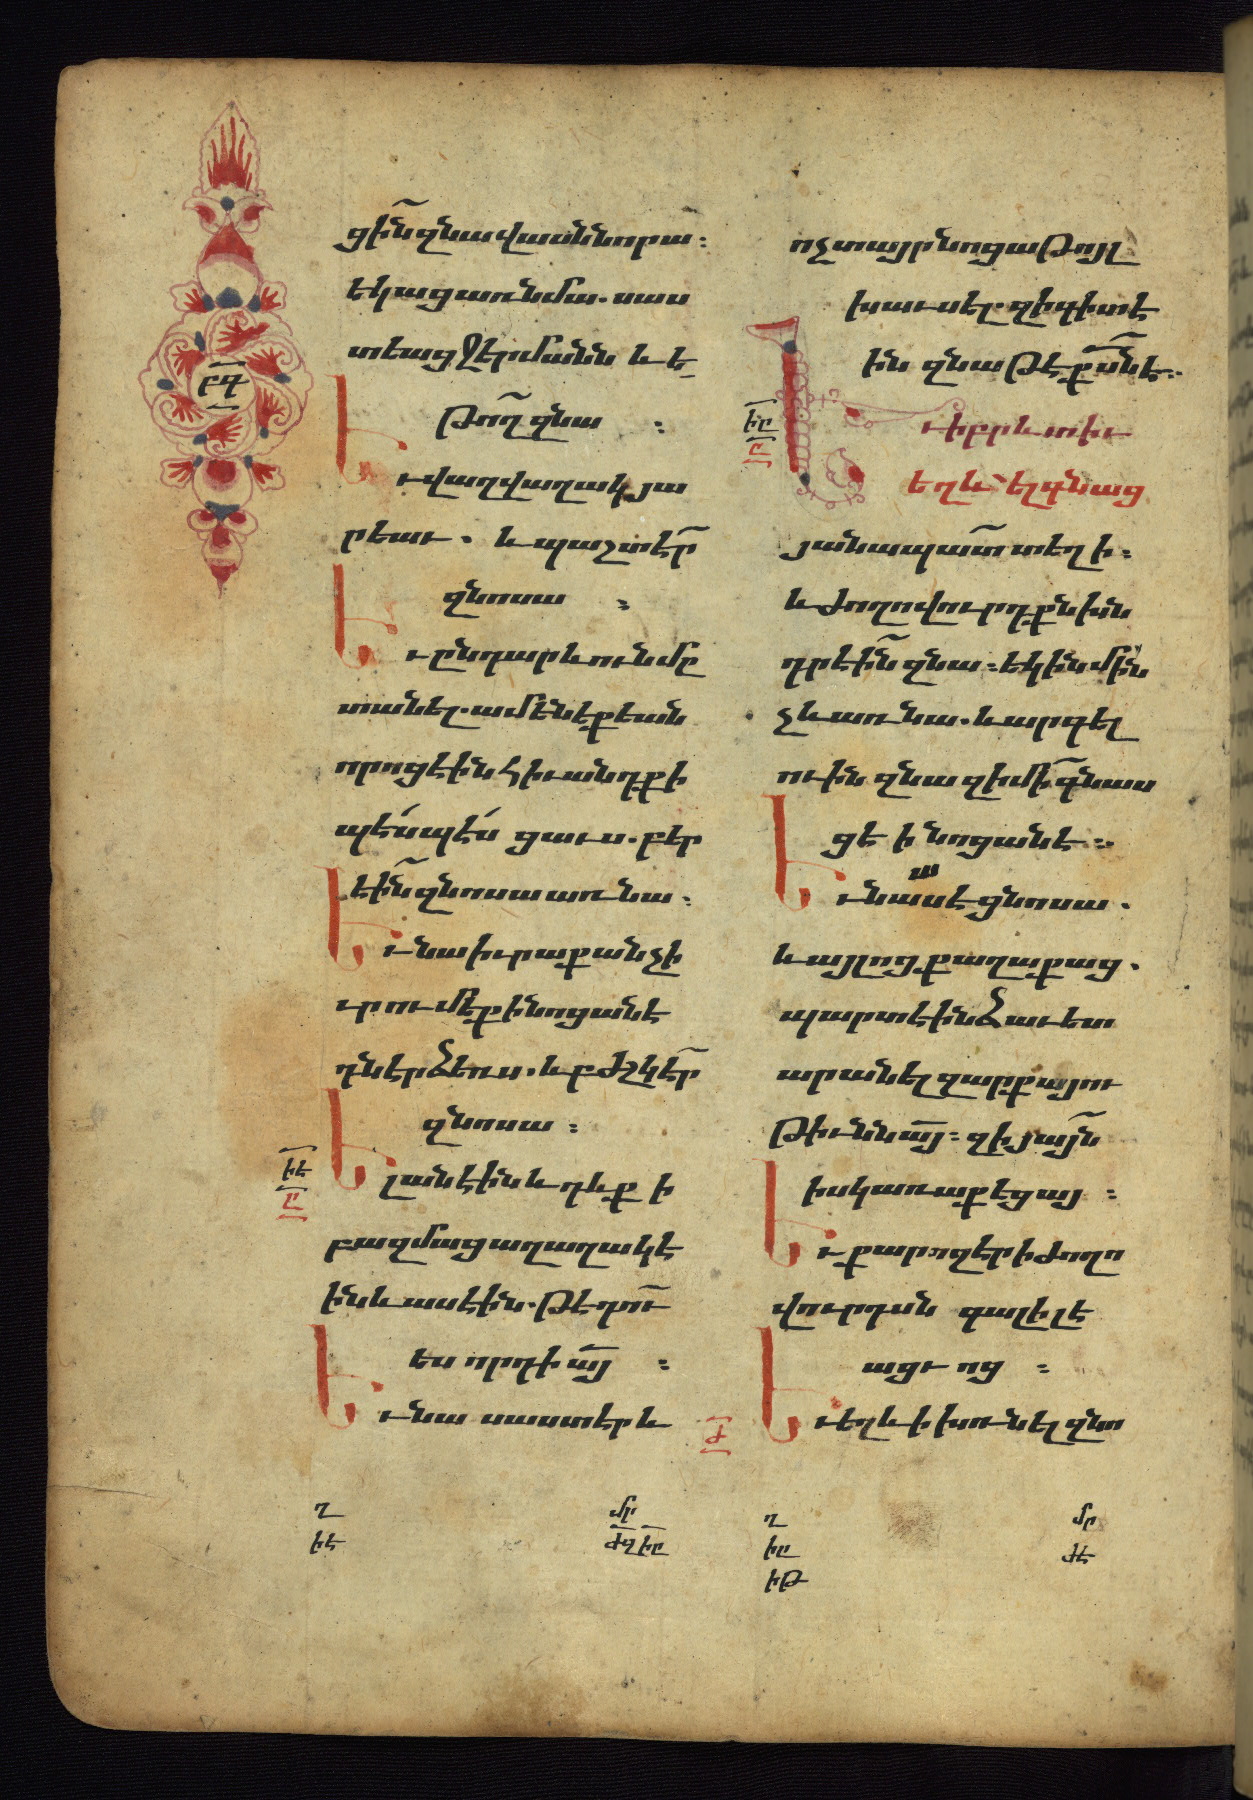 բգ
ցի̅ն զնա վասն նորա։
եկաց առ նմա. սաս
տեաց ջերմանն և ե
թո̅ղ զնա ։
Եւ վաղվաղակ յա
րեաւ. և պաշտէ̅ր
զնոսա ։
Եւ ընդ արևուն մը
տանել. ամենեքեան
որոց էին հիւանդք ի
պէսպէս ցաւս. բեր
էի̅ն զնոսա առ նա.
Եւ նա իւրաքանչի
ւրումեք ի նոցանէ
դնէր ձեռս. և բժշկէ̅ր
զնոսա ։
իէ
ը
Ելանէին և դևք ի
բազմաց աղաղակէ
ին և ասէին. թէ դո̅ւ
ես որդի ա̅յ ։
Եւ նա սաստէր և
ոչ տայր նոցա թոյլ
խաւսել. զի գիտէ
ին զնա թէ ք̅ս̅ն է։
իը
ը
Եւ իբրև տիւ
եղև՝ ել գնաց
յանապա̅տ տեղի։
և ժողովուրդքն խն
դրէի̅ն զնա։ եկին մին
չև առ նա. և արգել
ուին զնա զի մի̅ գնաս
ցէ ի նոցանէ։
Եւ նա ասէ ցնոսա.
և այլոց քաղաքաց.
պարտ է ինձ աւետ
արանել զարքայու
թիւնն ա̅յ։ զի յայն
իսկ առաքեցայ ։
Եւ քարոզէր ի ժողո
վուրդսն գալիլէ
ացւոց ։
ժ
Եւ եղև ի խռնել զնո
ղ
իէ
մր
ժզ իը
ղ
իը
իթ
մր
ժէ